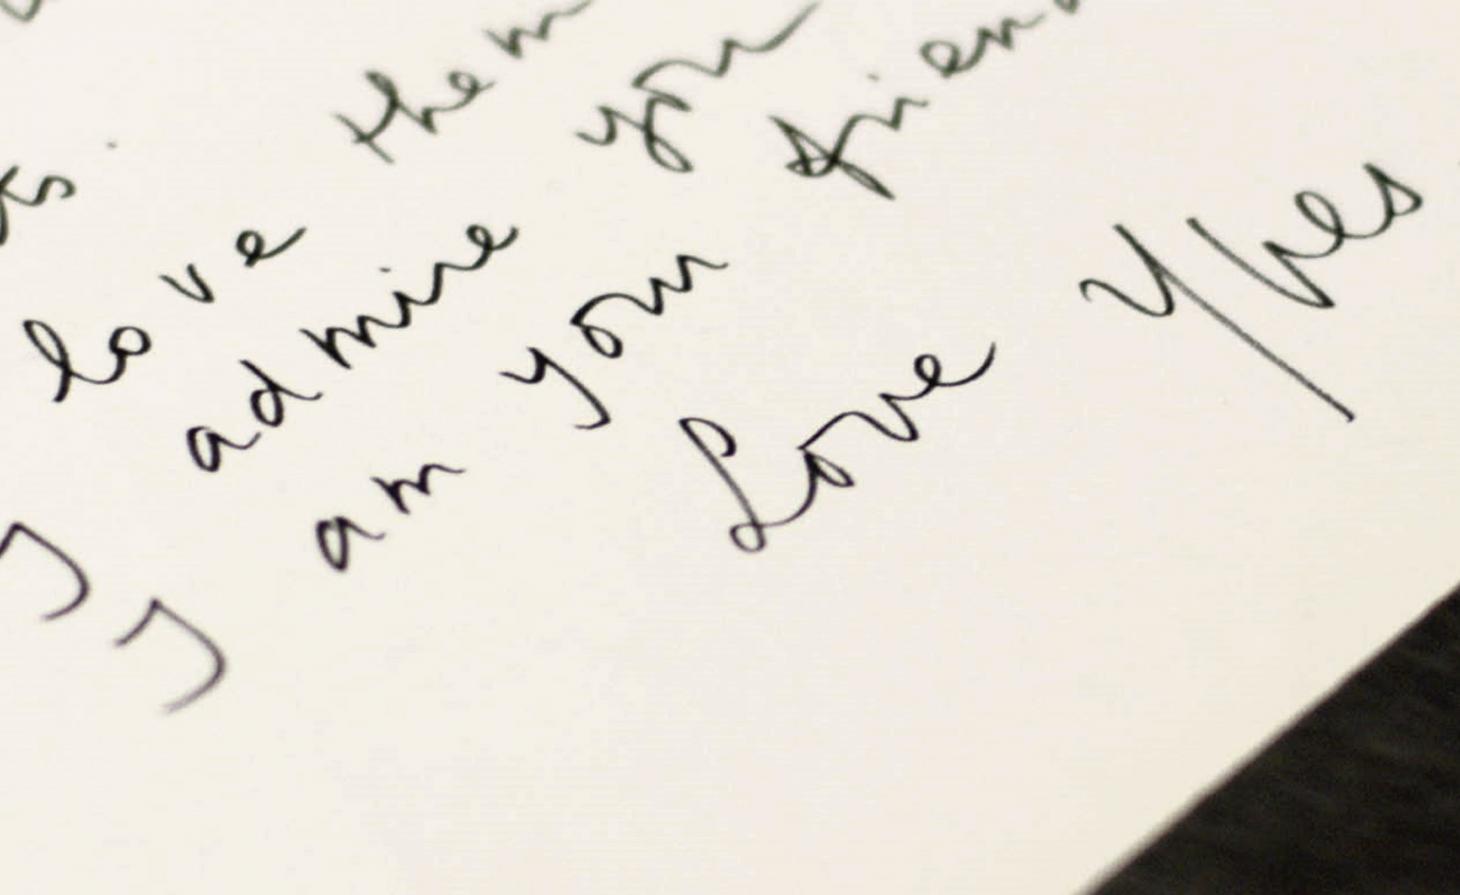 love them
I admire you
I am your friend
Love Yves